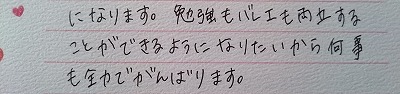 になります。勉強もバレエも両立する
ことができるようになりたいから何事
も全力でがんばります。